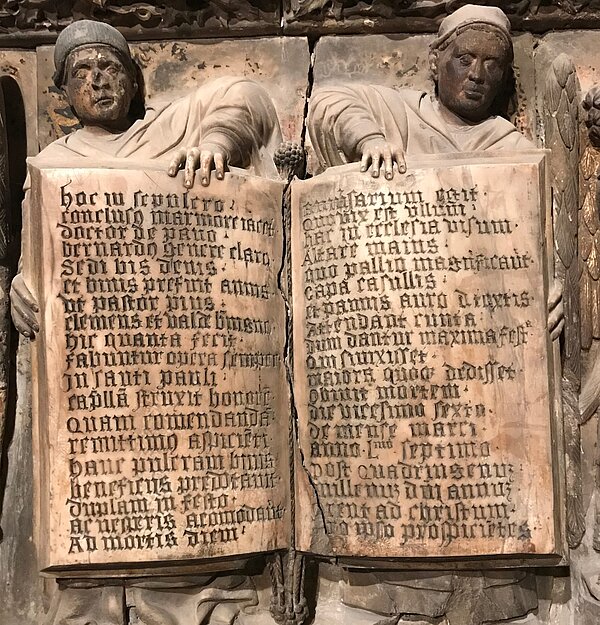 hoc in sepulcro
conclusᵒ marmore iacet
doctor de pavo
bernardᵒ genere clarᵒ
Sedi bis denis
et binis prefuit annis
vt pastor pius
clemens et valde benignᵒ
hic quanta fecit
fabuntur opera semper
In sancti pauli
capella struxit honore
quam comendandā
remittimᵒ aspiciēti
hanc pulcram binis
beneficiis preditavit
duplam in festo
ac negeris acomodavit
Ad mortis diem
anniversarium egit
quovix est vllum
hac in ecclesia visum
Altare maius
quo pallio magnificavit
capa casullis
et pannis auro dirextis
Attendant cunta
dum dantur maxima festa
Qui si vixisset
maiora quoque dedisset
obivit mortem
die vicesimo sexto
de mense marci
anno septimo
post quadringenus
millenus dum annus
erent ad christum
pro ipso prospicietes